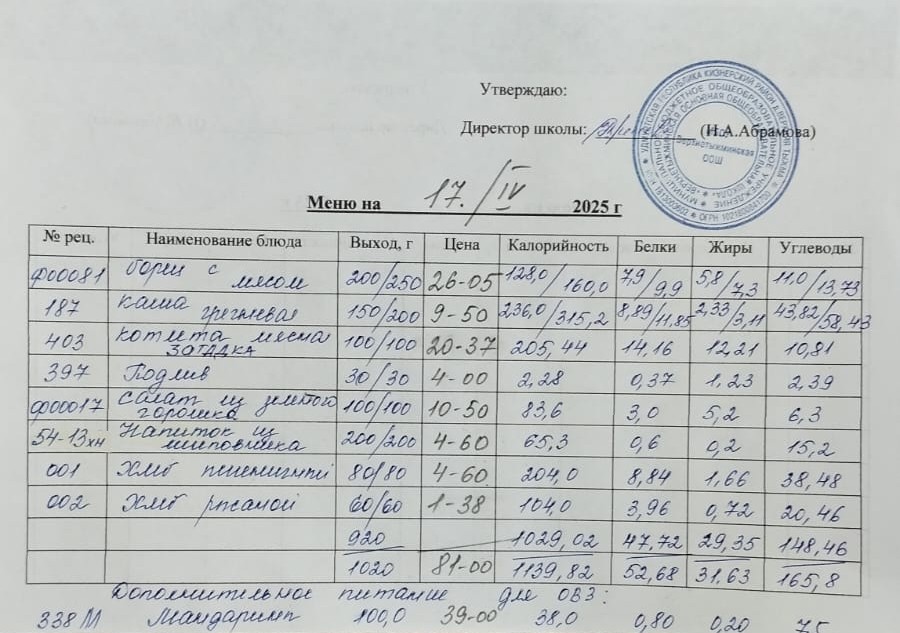 Утверждаю:
Директор школы: (Н.А.Абрамова)
Меню на 17./IV 2025 г
№ рец. Наименование блюда Выход, г Цена Калорийность Белки Жиры Углеводы
ф00081 борщ с мясом 200/250 26-05 128,0/160,0 7,9/9,9 5,8/7,3 11,0/13,73
187 каша гречневая 150/200 9-50 236,0/315,2 8,89/11,85 2,33/3,11 43,82/58,43
403 котлета мясная ЗАГАДКА 100/100 20-37 205,44 14,16 12,21 10,81
397 Подлив 30/30 4-00 2,28 0,37 1,23 2,39
ф00017 салат из зеленого горошка 100/100 10-50 83,6 3,0 5,2 6,3
54-13хн Напиток из шиповника 200/200 4-60 65,3 0,6 0,2 15,2
001 Хлеб пшеничный 80/80 4-60 204,0 8,84 1,66 38,48
002 Хлеб ржаной 60/60 1-38 104,0 3,96 0,72 20,46
920 1029,02 47,72 29,35 148,46
1020 81-00 1139,82 52,68 31,63 165,8
Дополнительное питание для ОВЗ:
338М Мандарины 100,0 39-00 38,0 0,80 0,20 7,5